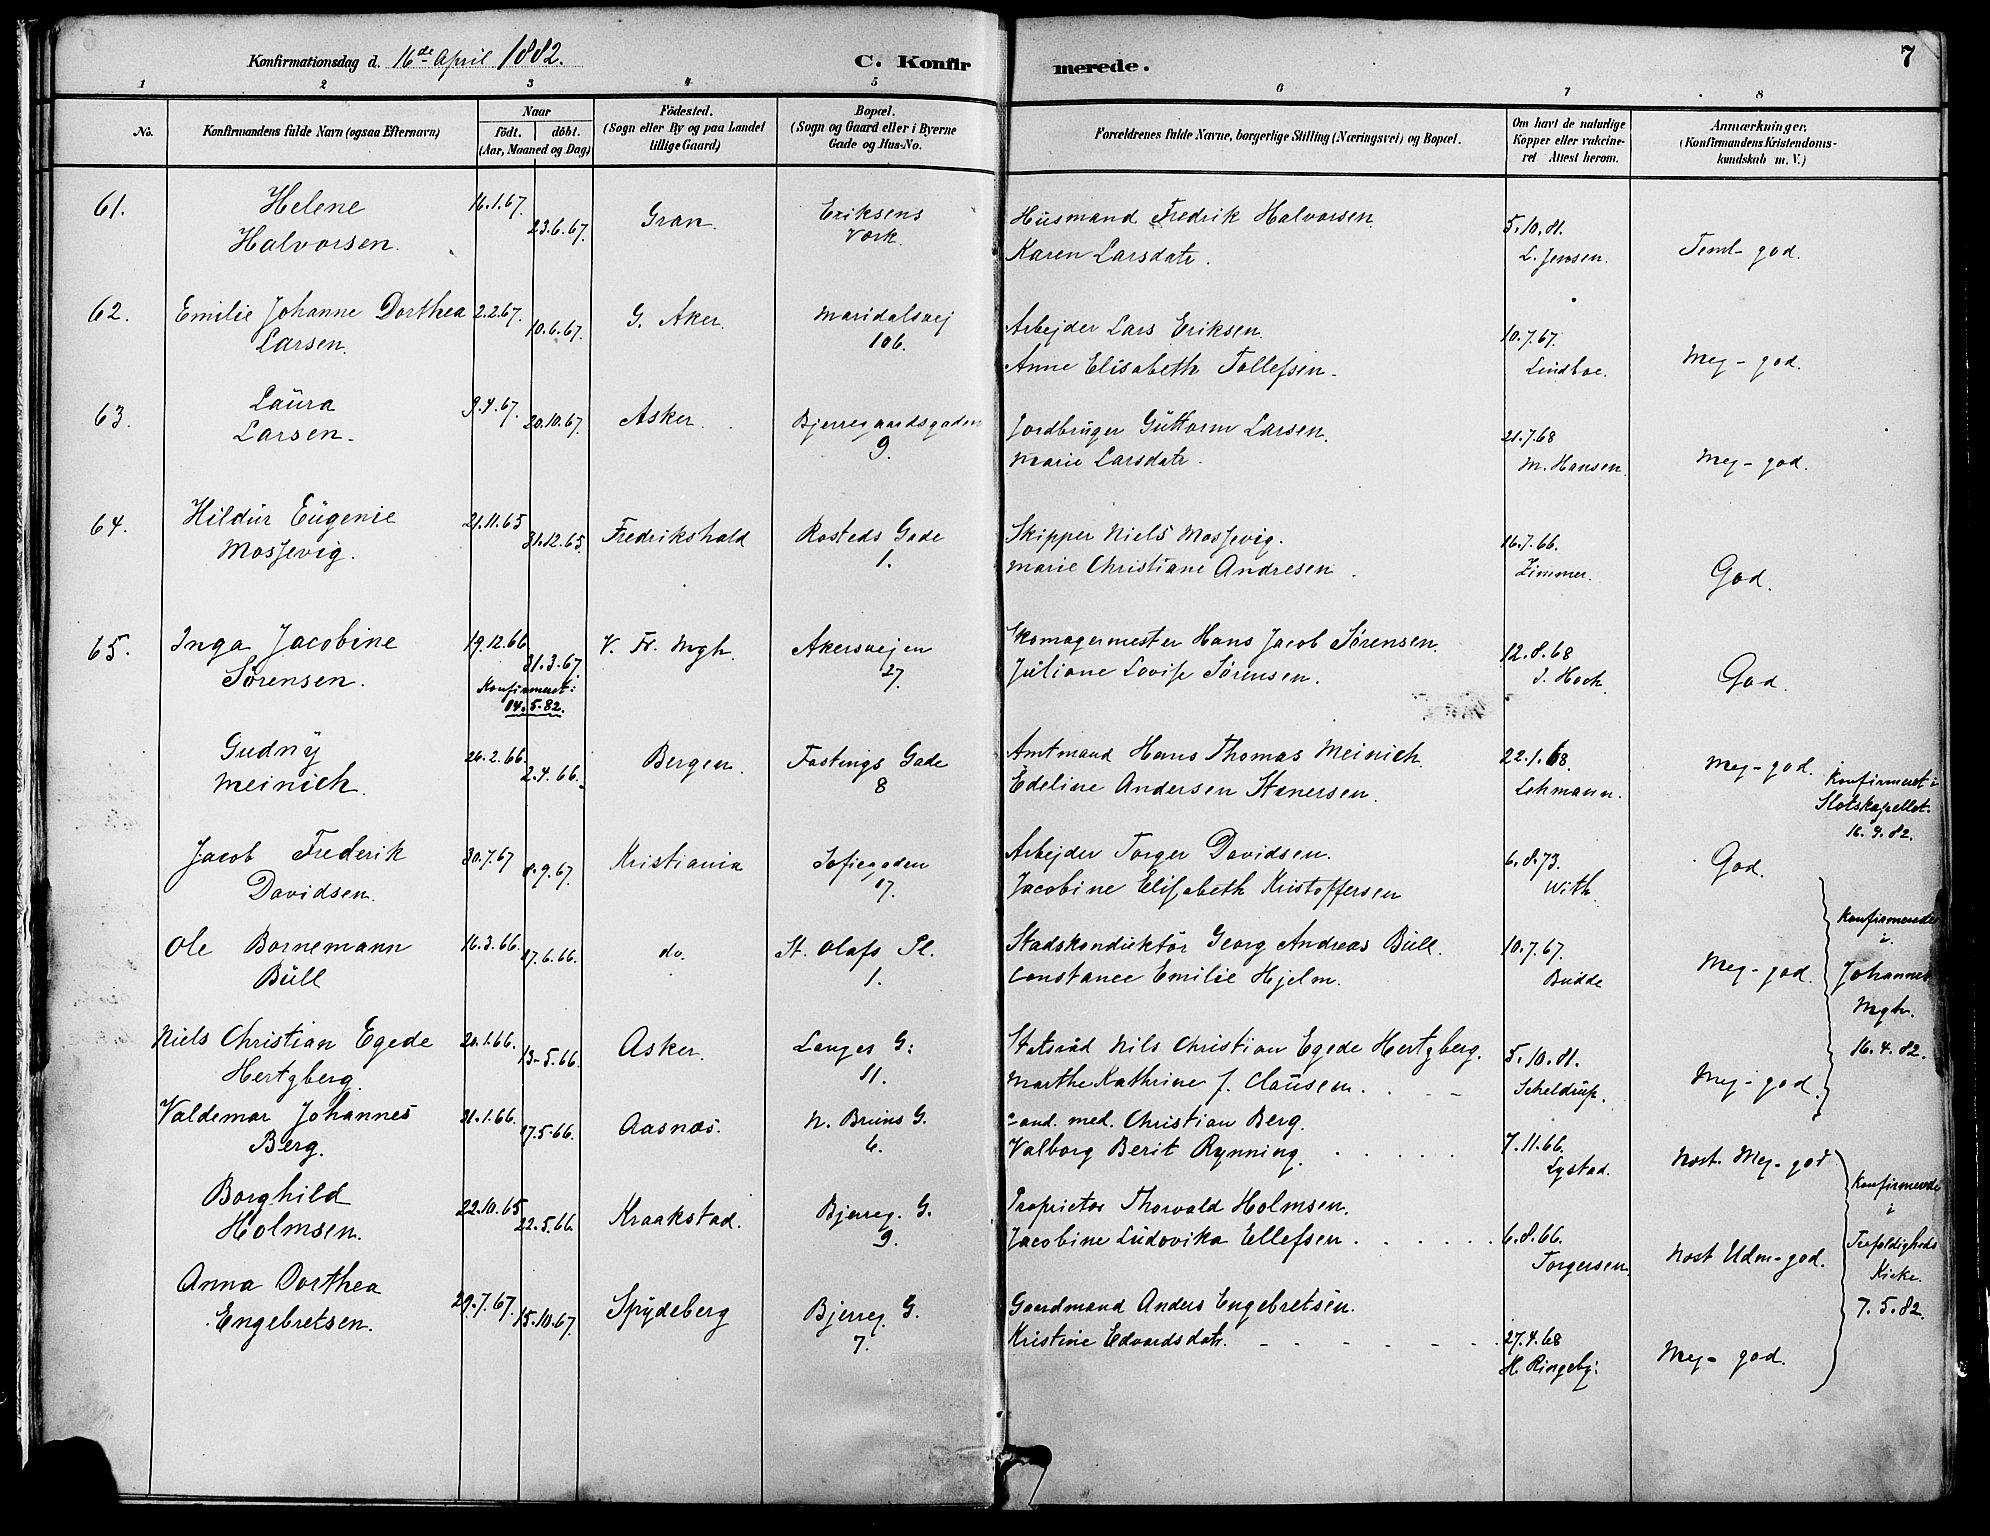 Konfirmationsdag d. 16de April 1882. C. Konfirmerede. 7
1 2 3 4 5 6 7 8
No. Konfirmandens fulde Navn (ogsaa Efternavn) Naar födt. döbt. (Aar, Maaned og Dag) Födested. (Sogn eller By og paa Landet tillige Gaard) Bopæl. (Sogn og Gaard eller i Byerne Gade og Hus-No. Forældrenes fulde Navne, borgerlige Stilling (Næringsvei) og Bopæl. Om havt de naturlige Kopper eller vakcineret Attest herom. Anmærkninger. (Konfirmandens Kristendomskundskab m. V.)
61. Helene 16.1.67. 23.6.67. Gran. Eriksens Husmand Fredrik Halvorsen. 5.10.81.
Halvorsen. Værk. Karen Larsdatr. L. Jensen. Teml- god.
62. Emilie Johanne Dorthea 2.2.67. 10.6.67. G. Aker. Maridalsvej Arbejder Lars Eriksen. 10.7.67.
Larsen. 106. Anne Elisabeth Tollefsen. Lindboe. Meg- god.
63. Laura 9.4.67. 20.10.67. Asker. Bjerregaardsgaden Jordbruger Guttorm Larsen. 21.7.68
Larsen. 9. Marie Larsdatr. M. Hansen. Meg- god.
64. Hildur Eugenie 21.11.65 31.12.65. Fredrikshald Rosteds Gade Skipper Niels Mossevig. 16.7.66.
Mossevig. 1. Marie Christiane Andresen. Zimmer. God.
65. Inga Jacobine 19.12.66 31.3.67. V. Fr. Mgh. Akersvejen Skomagermester Hans Jacob Sørensen. 12.8.68
Sørensen. Konfirmeret: 27. Juliane Lovise Sørensen. J. Hoch. God.
14.5.82.
Gudny 26.2.66. 2.4.66. Bergen. Fastings Gade Amtmand Hans Thomas Meinich. 22.1.68. Meg- god. Konfirmeret i
Meinich. 8 Edeline Andersen Stenersen. Lehmann. Slotskapellet.
16.4.82.
Jacob Frederik 30.7.67 8.9.67. Kristiania Sofiegaden Arbejder Torger Davidsen. 6.8.73. God.
Davidsen. 17. Jacobine Elisabeth Kristoffersen With.
Ole Bornemann 16.3.66. 17.6.66. do. St. Olafs Pl. Stadskonduktör Georg Andreas Bull. 10.7.67. Meg- god. Konfirmerede
Bull 1. Constance Emilie Hjelm. Budde i
Johannes
Mgh.
16.4.82.
Niels Christian Egede 20.1.66. 13-5.66. Asker. Langes G: Statsråd Nils Christian Egede Hertzberg. 5.10.81.
Hertzberg. 11. Marthe Kathrine f. Clausen. Scheldrup. Meg- god.
Valdemar Johannes 21.1.66. 17.5.66. Aasnæs. N. Bruns G. Cand. med. Christian Berg.
Berg. 6. Valborg Berit Rynning. 7.11.66. Lystad. Næst. Meg- god
Borghild 22.10.65 22.5.66. Kraakstad. Bjerreg. G. Proprietor Thorvald Holmsen. Konfirmerede
Holmsen. 9. Jacobine Ludovika Ellefsen. 6.8.66. Torgersen. Næst Udm- god. i
Trefoldigheds
Kirke.
7.5.82.
Anna Dorthea 29.7.67. 15.10.67. Spydeberg Bjerreg G. Gaardmand Anders Engebretsen.
Engebretsen. 7. Kristine Edvardsdatr. 27.4.68
H. Ringeby: Meg- god.